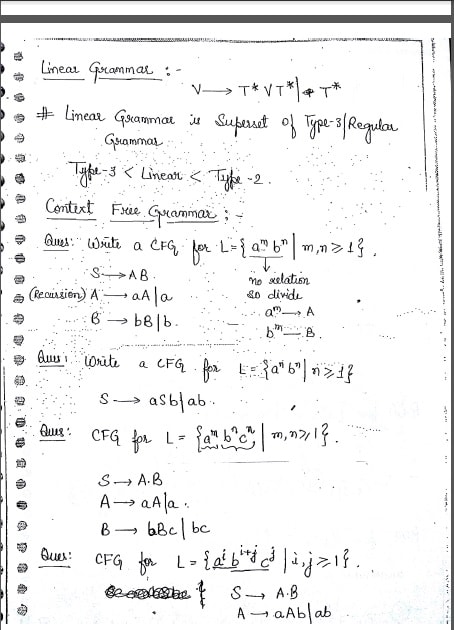 Linear Grammar :-
V → T* V T* | T*
# Linear Grammar is Superset of Type-3/Regular
Grammar
Type-3 < Linear < Type-2.
Context Free Grammar ; -
Ques: Write a CFG for L = { a^m b^n | m,n ≥ 1 } .
S → AB. no relation
(Recursion) A → aA | a so divide
B → bB | b. a^m — A
b^m — B
Ques: Write a CFG for L = { a^n b^n | n ≥ 1 }
S → aSb | ab .
Ques: CFG for L = { a^m b^n c^n | m,n ≥ 1 } .
S → A.B
A → aA | a .
B → bBc | bc
Ques: CFG for L = { a^i b^i+j c^j | i,j ≥ 1 } .
S → A.B
A → aAb | ab